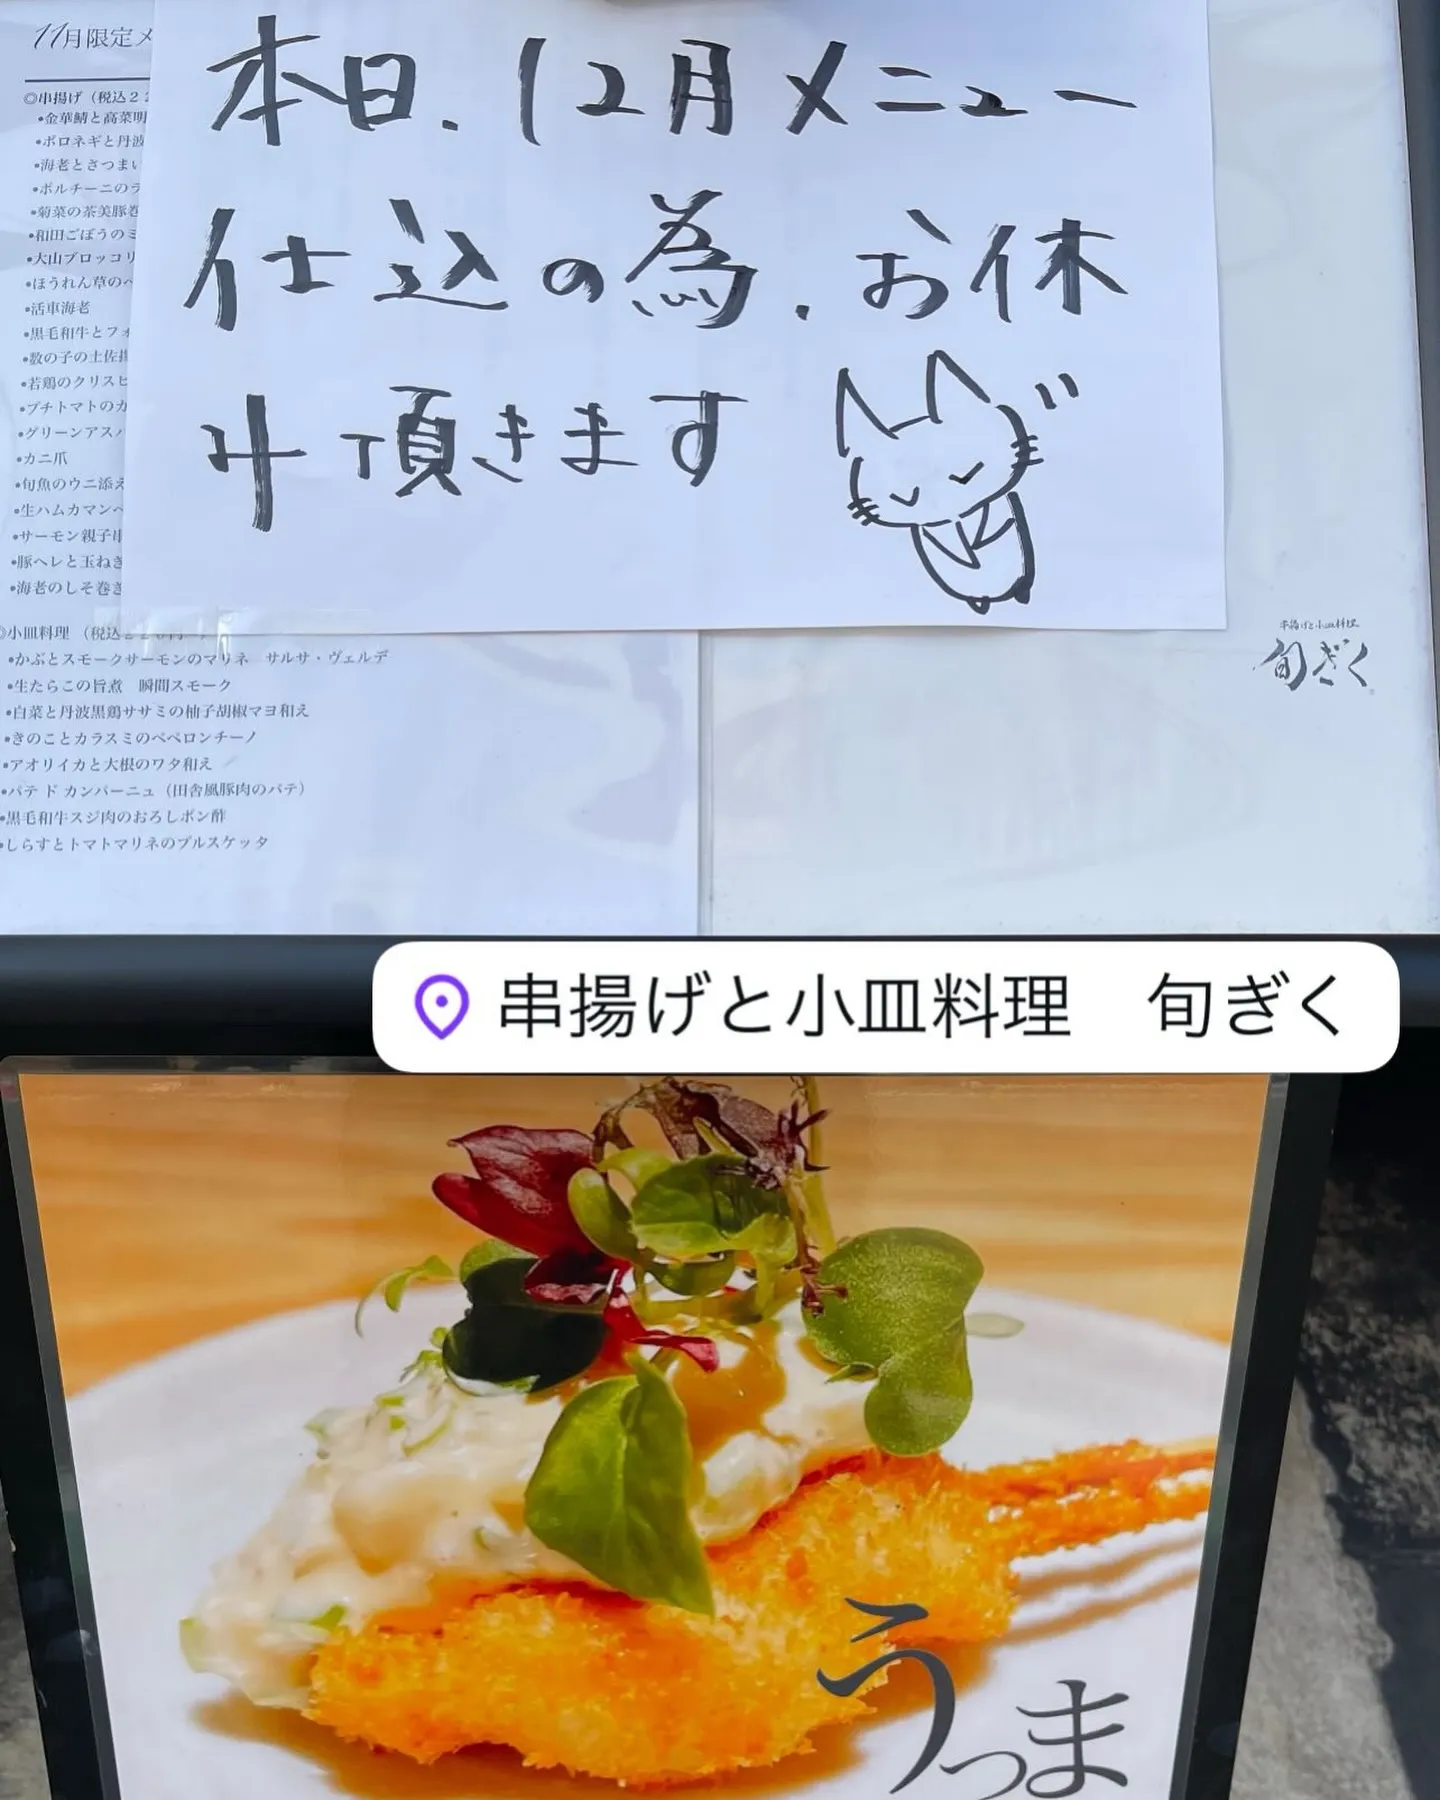 11月限定メ
◎串揚げ（税込22
•金華鯖と高菜明
•ポロネギと丹波
•海老とさつまい
•ポルチーニのラ
•菊菜の茶美豚巻
•和田ごぼうのミ
•大山ブロッコリ
•ほうれん草のペ
•活車海老
•黒毛和牛とフォ
•数の子の土佐揚
•若鶏のクリスピ
•プチトマトのカ
•グリーンアスパ
•カニ爪
•旬魚のウニ添え
•生ハムカマンベ
•サーモン親子串
•豚ヘレと玉ねぎ
•海老のしそ巻き
◎小皿料理（税込
•かぶとスモークサーモンのマリネ　サルサ・ヴェルデ
•生たらこの旨煮　瞬間スモーク
•白菜と丹波黒鶏ササミの柚子胡椒マヨ和え
•きのことカラスミのペペロンチーノ
•アオリイカと大根のワタ和え
•パテ ド カンパーニュ（田舎風豚肉のパテ）
•黒毛和牛スジ肉のおろしポン酢
•しらすとトマトマリネのブルスケッタ
本日.12月メニュー
仕込の為.お休
み頂きます
串揚げと小皿料理
旬ぎく
串揚げと小皿料理　旬ぎく
うっま